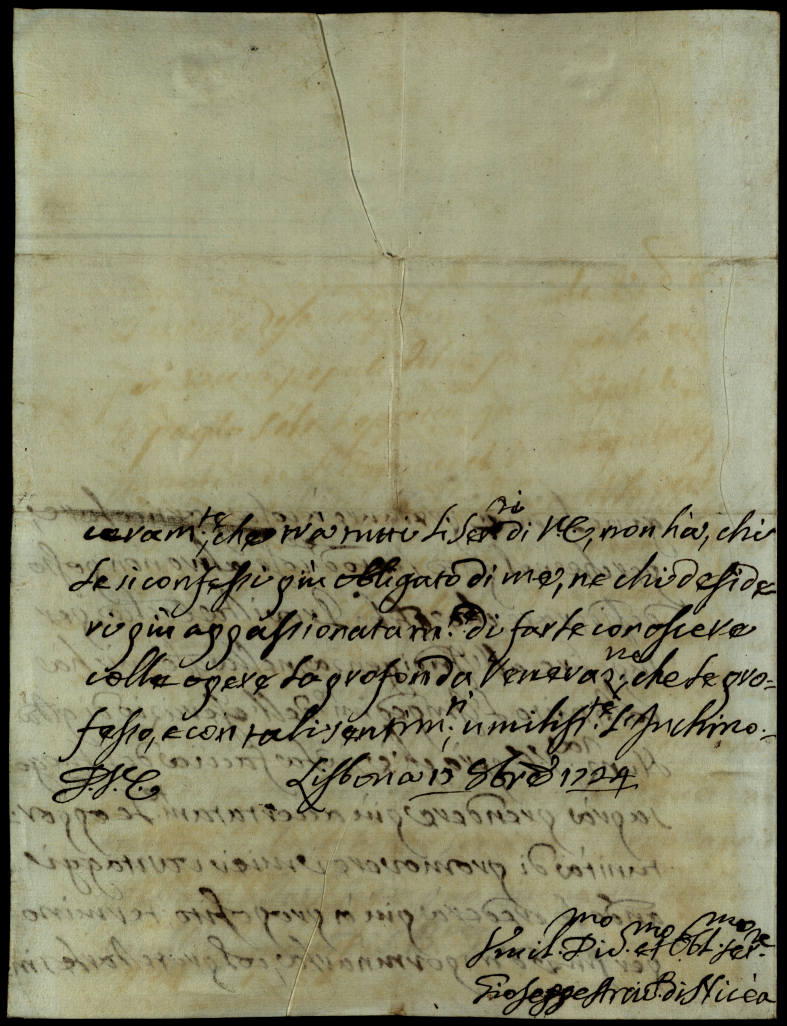 ceram.te, che trà tutti li Ser.ri di V.E., non hà, chi
le si confessi più obbligato di me, ne chi deside-
ri più appassionatam.te di farle conoscere
colle opere la profonda Veneraz.ne, che le pro-
fesso, e con tali sentim.ti umiliss.te L'Inchino.
D.V.E. Lisbona 17 8bre 1724
Vmil.mo Div.mo et Obl.mo Ser.re
Gioseppe Arciv.o di Nicèa